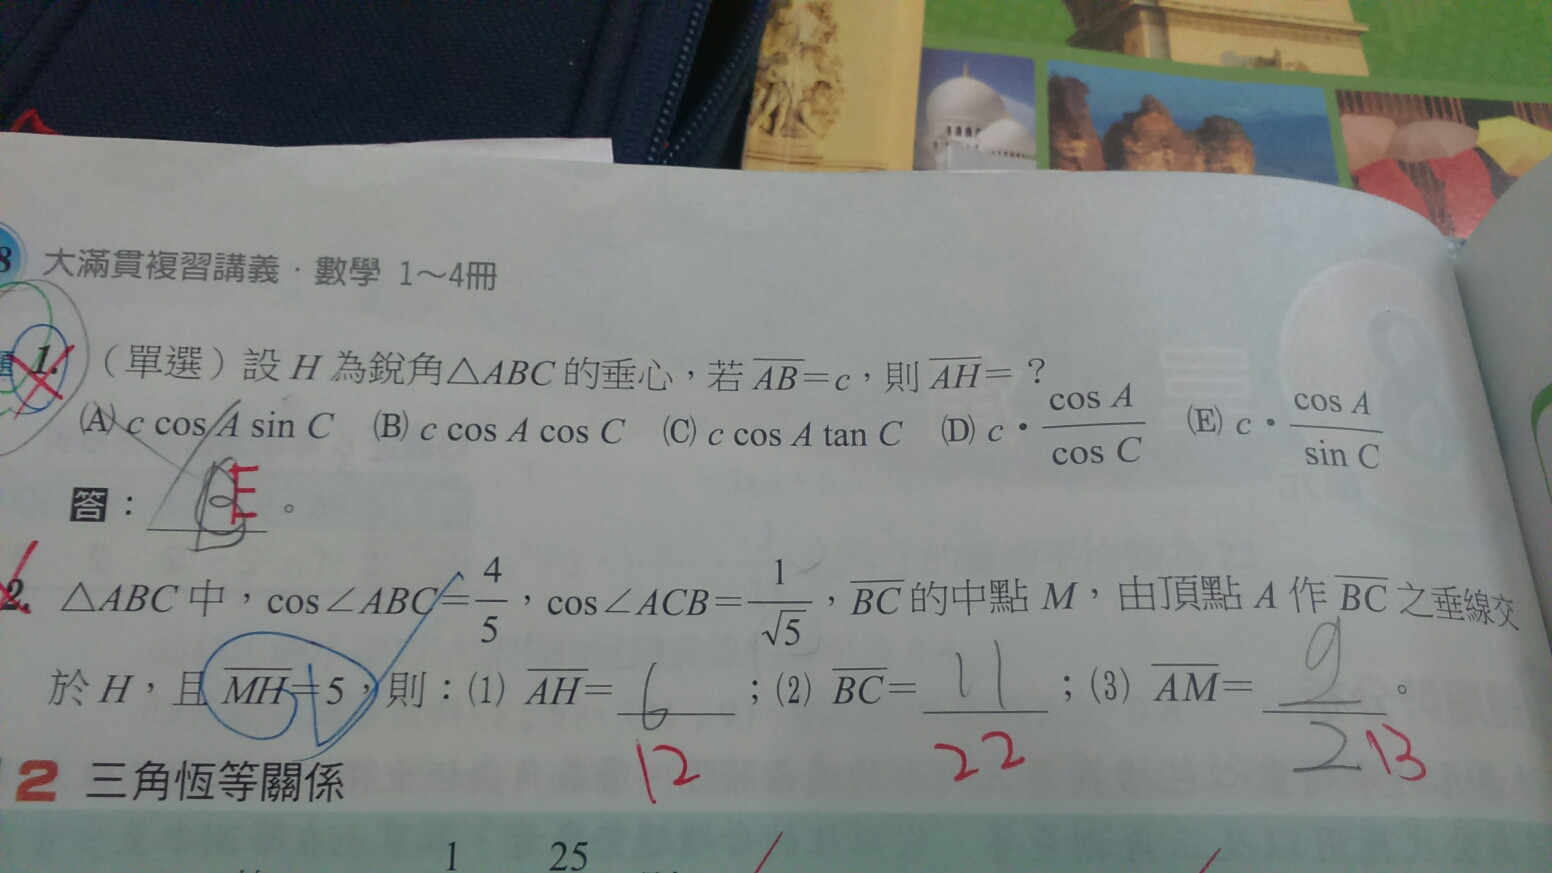 8 大滿貫複習講義．數學 1～4冊
1. （單選）設 H 為銳角△ABC 的垂心，若 \overline{AB}=c，則 \overline{AH}=？
(A) c cos A sin C (B) c cos A cos C (C) c cos A tan C (D) c·\frac{cos A}{cos C} (E) c·\frac{cos A}{sin C}
答：E。
2. △ABC 中，cos∠ABC=\frac{4}{5}，cos∠ACB=\frac{1}{\sqrt{5}}，\overline{BC} 的中點 M，由頂點 A 作 \overline{BC} 之垂線交
於 H，且 \overline{MH}=5，則：(1) \overline{AH}=6；(2) \overline{BC}=11；(3) \overline{AM}=\frac{9}{2}。
12 22 13
2 三角恆等關係
1 25